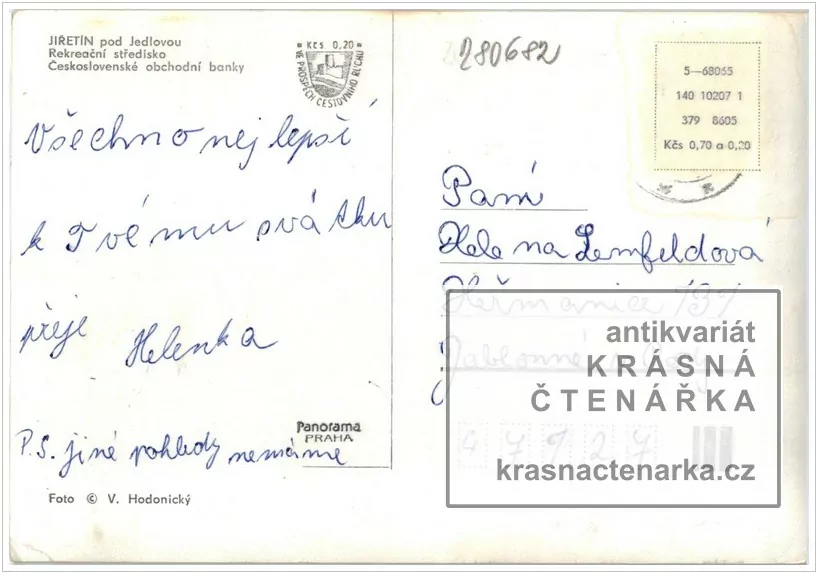 JIŘETÍN pod Jedlovou
Rekreační středisko
Československé obchodní banky
Kčs 0,20
VE PROSPĚCH CESTOVNÍHO RUCHU
280682
5—68055
140 10207 1
379 8605
Kčs 0,70 a 0,20
Všechno nejlepší
k Tvému svátku
přeje Helenka
P.S. jiné pohledy nemáme
Panorama
PRAHA
Foto © V. Hodonický
Paní
Helena Lemfeldová
Heřmanice 131
Jablonné
47127
antikvariát
KRÁSNÁ
ČTENÁŘKA
krasnactenarka.cz